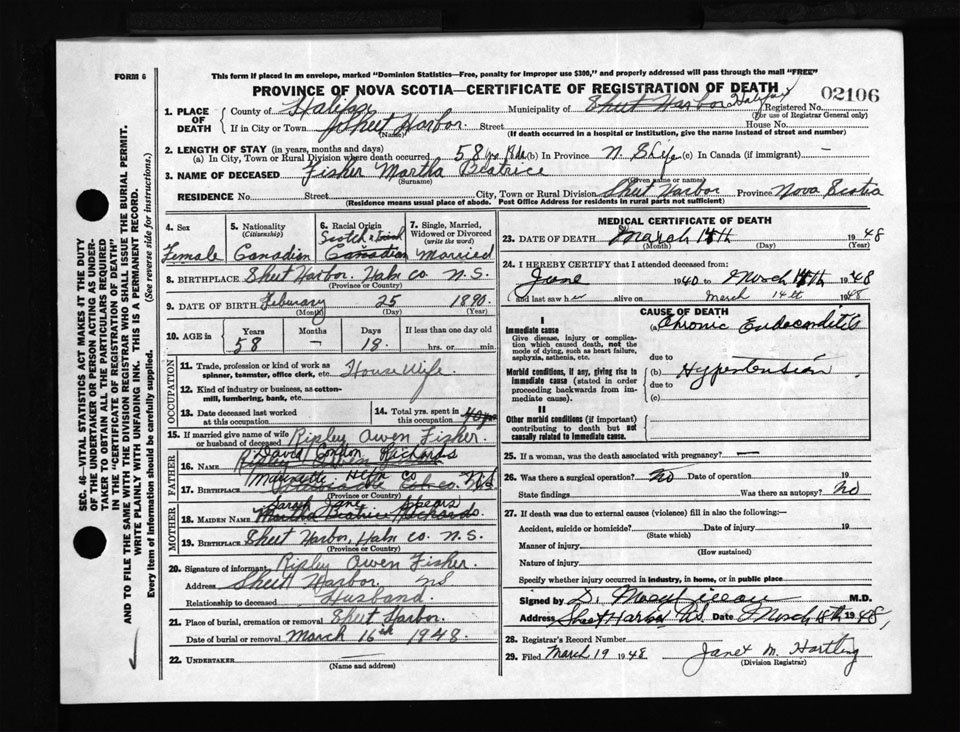 FORM 6
This form if placed in an envelope, marked "Dominion Statistics—Free, penalty for improper use $300," and properly addressed will pass through the mail "FREE"
PROVINCE OF NOVA SCOTIA—CERTIFICATE OF REGISTRATION OF DEATH
02106
1. PLACE OF DEATH
County of Halifax Municipality of Sheet Harbor Halifax Registered No.
(For use of Registrar General only)
If in City or Town Sheet Harbor. Street House No.
(Name) (If death occurred in a hospital or institution, give the name instead of street and number)
2. LENGTH OF STAY (in years, months and days)
(a) In City, Town or Rural Division where death occurred 58 yrs (b) In Province N. S Life (c) In Canada (if immigrant) —
3. NAME OF DECEASED Fisher Martha Beatrice
(Surname) (Given name or names)
RESIDENCE No. Street City, Town or Rural Division Sheet Harbor Province Nova Scotia
(Residence means usual place of abode. Post Office Address for residents in rural parts not sufficient)
4. Sex Female
5. Nationality (Citizenship) Canadian
6. Racial Origin Scotch & Irish Canadian
7. Single, Married, Widowed or Divorced (write the word) Married
8. BIRTHPLACE Sheet Harbor. Halx co. N.S.
(Province or Country)
9. DATE OF BIRTH Feburary 25 1890.
(Month) (Day) (Year)
10. AGE in Years Months Days If less than one day old
58 — 18. hrs. or min.
OCCUPATION
11. Trade, profession or kind of work as spinner, teamster, office clerk, etc. House Wife.
12. Kind of industry or business, as cotton-mill, lumbering, bank, etc.
13. Date deceased last worked at this occupation
14. Total yrs. spent in this occupation 40 yrs
15. If married give name of wife or husband of deceased Ripley Owen Fisher.
FATHER
David Richards
16. NAME Ripley
Hlfx Co
17. BIRTHPLACE Co. N.S.
(Province or Country)
MOTHER
Sarah Jane Spears
18. MAIDEN NAME Martha Beatrice Richards.
19. BIRTHPLACE Sheet Harbor, Halx co. N.S.
(Province or Country)
20. Signature of informant Ripley Owen Fisher.
Address Sheet Harbor. NS
Relationship to deceased Husband.
21. Place of burial, cremation or removal Sheet Harbor.
Date of burial or removal March 16th 1948.
22. UNDERTAKER
(Name and address)
MEDICAL CERTIFICATE OF DEATH
23. DATE OF DEATH March 14th 1948
(Month) (Day) (Year)
24. I HEREBY CERTIFY that I attended deceased from:
June 1940 to March 14th 1948
and last saw her alive on March 14th 1948
CAUSE OF DEATH
I
Immediate cause
Give disease, injury or complication which caused death, not the mode of dying, such as heart failure, asphyxia, asthenia, etc.
(a) Chronic Endocarditis
due to
Morbid conditions, if any, giving rise to immediate cause (stated in order proceeding backwards from immediate cause).
(b) Hypertension
due to
(c)
II
Other morbid conditions (if important) contributing to death but not causally related to immediate cause.
25. If a woman, was the death associated with pregnancy? —
26. Was there a surgical operation? No Date of operation 19
State findings Was there an autopsy? No
27. If death was due to external causes (violence) fill in also the following:—
Accident, suicide or homicide? Date of injury 19
(State which)
Manner of injury
(How sustained)
Nature of injury
Specify whether injury occurred in industry, in home, or in public place
Signed by D. M.D.
Address Sheet Harbor NS. Date March 18th 1948,
28. Registrar's Record Number
29. Filed March 19 1948 Janet M. Hartling
(Division Registrar)
SEC. 46—VITAL STATISTICS ACT MAKES IT THE DUTY
OF THE UNDERTAKER OR PERSON ACTING AS UNDER-
TAKER TO OBTAIN ALL THE PARTICULARS REQUIRED
IN THE "CERTIFICATE OF REGISTRATION OF DEATH"
AND TO FILE THE SAME WITH THE DIVISION REGISTRAR WHO SHALL ISSUE THE BURIAL PERMIT.
WRITE PLAINLY WITH UNFADING INK. THIS IS A PERMANENT RECORD.
Every item of information should be carefully supplied. (See reverse side for instructions.)